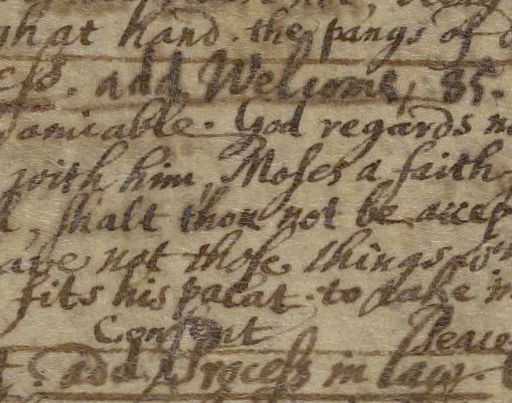 at hand. the pangs of
ess. add Welcome, 85.
amicable. God regards
with him, Moses a faith
shalt thou not be accep
ave not those things
fits his palat. to take
Consent Peace
add Process in law.